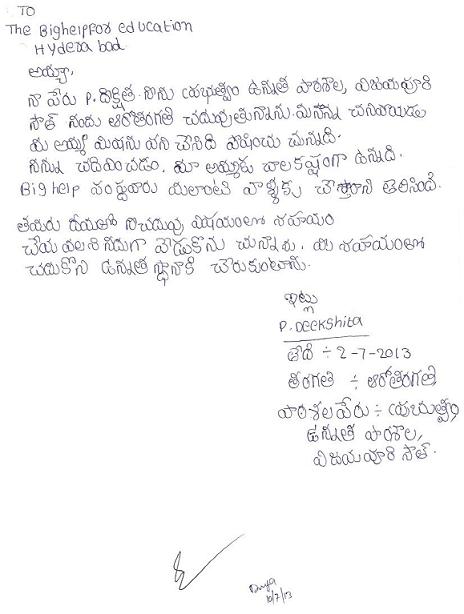 TO
The Bighelp For education
Hyderabad
అయ్యా,
నా పేరు P. దీక్షిత. నేను ప్రభుత్వం ఉన్నత పాఠశాల, విజయపూరి
సౌత్ నందు ఆరోతరగతి చదువుతున్నాను. మా నాన్న చనిపోయాడు
మా అమ్మ మిషను పని చేసి పోషించు చున్నది.
నన్ను చదివించడం, మా అమ్మకు చాలకష్టంగా ఉన్నది.
Bighelp సంస్థవారు ఇలాంటి వాళ్ళకు చేస్తారని తెలిసింది.
తమరు దయతో నా చదువు విషయంలో సహాయం
చేయవలసినదిగా వేడుకొను చున్నాను. మీ సహాయంతో
చదుకొని ఉన్నత స్థానాకి చేరుకుంటాను.
ఇట్లు
P. Deekshita
తేది ÷ 2-7-2013
తరగతి ÷ ఆరోతరగతి
పాఠశాలపేరు ÷ ప్రభుత్వం
ఉన్నత పాఠశాల,
విజయపూరి సౌత్.
10/7/13